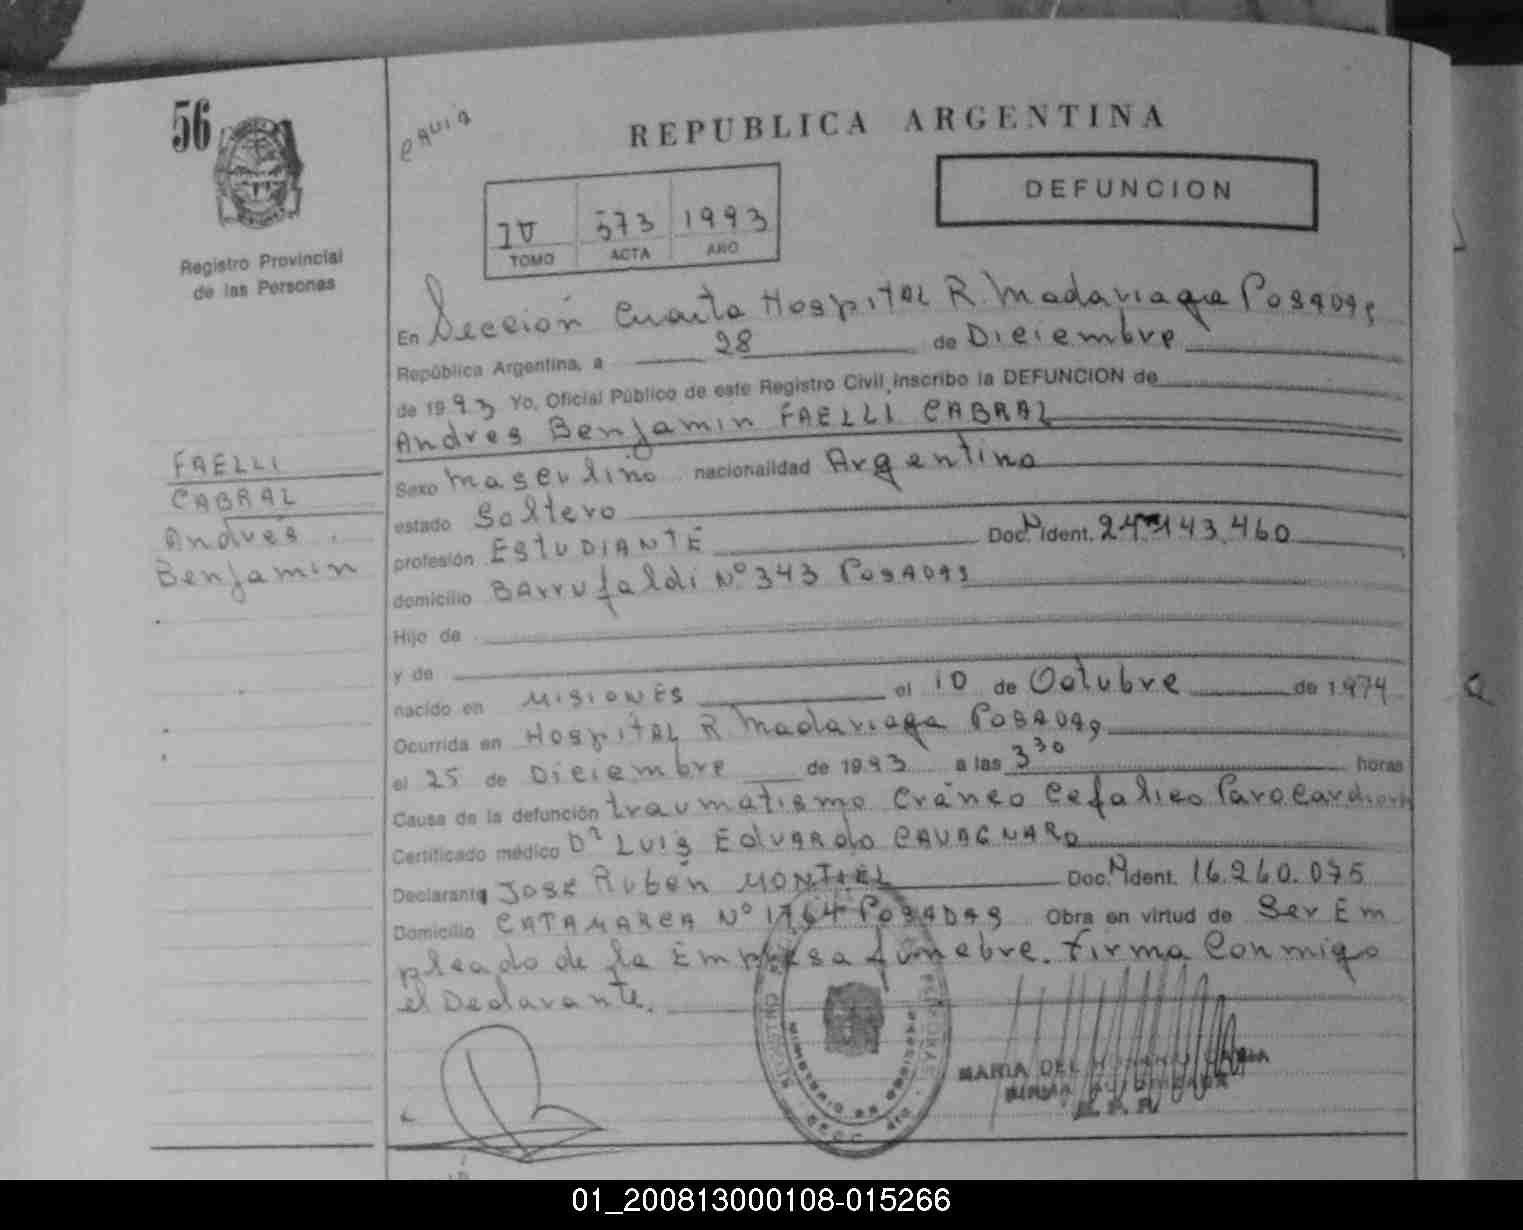 56
Registro Provincial
de las Personas
FAELLI
CABRAL
Andrés
Benjamin
REPUBLICA ARGENTINA
DEFUNCION
IV 573 1993
TOMO ACTA AÑO
En Sección Cuarta Hospital R. Madariaga Posadas
República Argentina, a 28 de Diciembre
de 1993 Yo, Oficial Público de este Registro Civil, inscribo la DEFUNCION de
Andres Benjamin FAELLI CABRAL
Sexo masculino nacionalidad Argentina
estado Soltero
profesión ESTUDIANTE Doc. N Ident. 24.143.460
domicilio Barrufaldi Nº 343 Posadas
Hijo de
y de
nacido en MISIONES el 10 de Octubre de 1974
Ocurrida en Hospital R Madariaga Posadas
el 25 de Diciembre de 1993 a las 3 30 horas
Causa de la defunción traumatismo Cráneo Cefalico Paro
Certificado médico Dr LUIS EdUARdo CAVAGNARO
Declarante José Rubén MONTIEL Doc. N Ident. 16.260.075
Domicilio CATAMARCA Nº 1764 POSADAS Obra en virtud de Ser Em
pleado de la Empresa fúnebre. firma Conmigo
el Declarante.
REGISTRO PERSONAS
MINISTERIO DE GOBIERNO
MARIA DEL
01_200813000108-015266